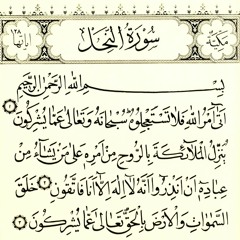 سُورَةُ النَّحْلِ
مَكِّيَّة
بِسْمِ اللَّهِ الرَّحْمَٰنِ الرَّحِيمِ
أَتَىٰ أَمْرُ اللَّهِ فَلَا تَسْتَعْجِلُوهُ سُبْحَانَهُ وَتَعَالَىٰ عَمَّا يُشْرِكُونَ
يُنَزِّلُ الْمَلَائِكَةَ بِالرُّوحِ مِنْ أَمْرِهِ عَلَىٰ مَنْ يَشَاءُ مِنْ
عِبَادِهِ أَنْ أَنْذِرُوا أَنَّهُ لَا إِلَٰهَ إِلَّا أَنَا فَاتَّقُونِ خَلَقَ
السَّمَوَاتِ وَالْأَرْضَ بِالْحَقِّ تَعَالَىٰ عَمَّا يُشْرِكُونَ